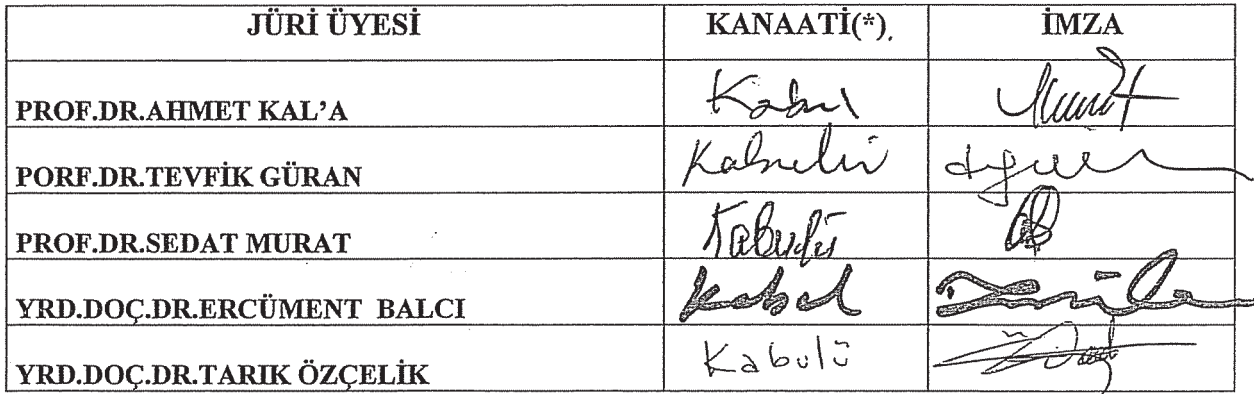 JÜRİ ÜYESİ KANAATİ(*) İMZA
PROF.DR.AHMET KAL'A Kabul
PORF.DR.TEVFİK GÜRAN Kabulü
PROF.DR.SEDAT MURAT Kabulü
YRD.DOÇ.DR.ERCÜMENT BALCI Kabul
YRD.DOÇ.DR.TARIK ÖZÇELİK Kabulü